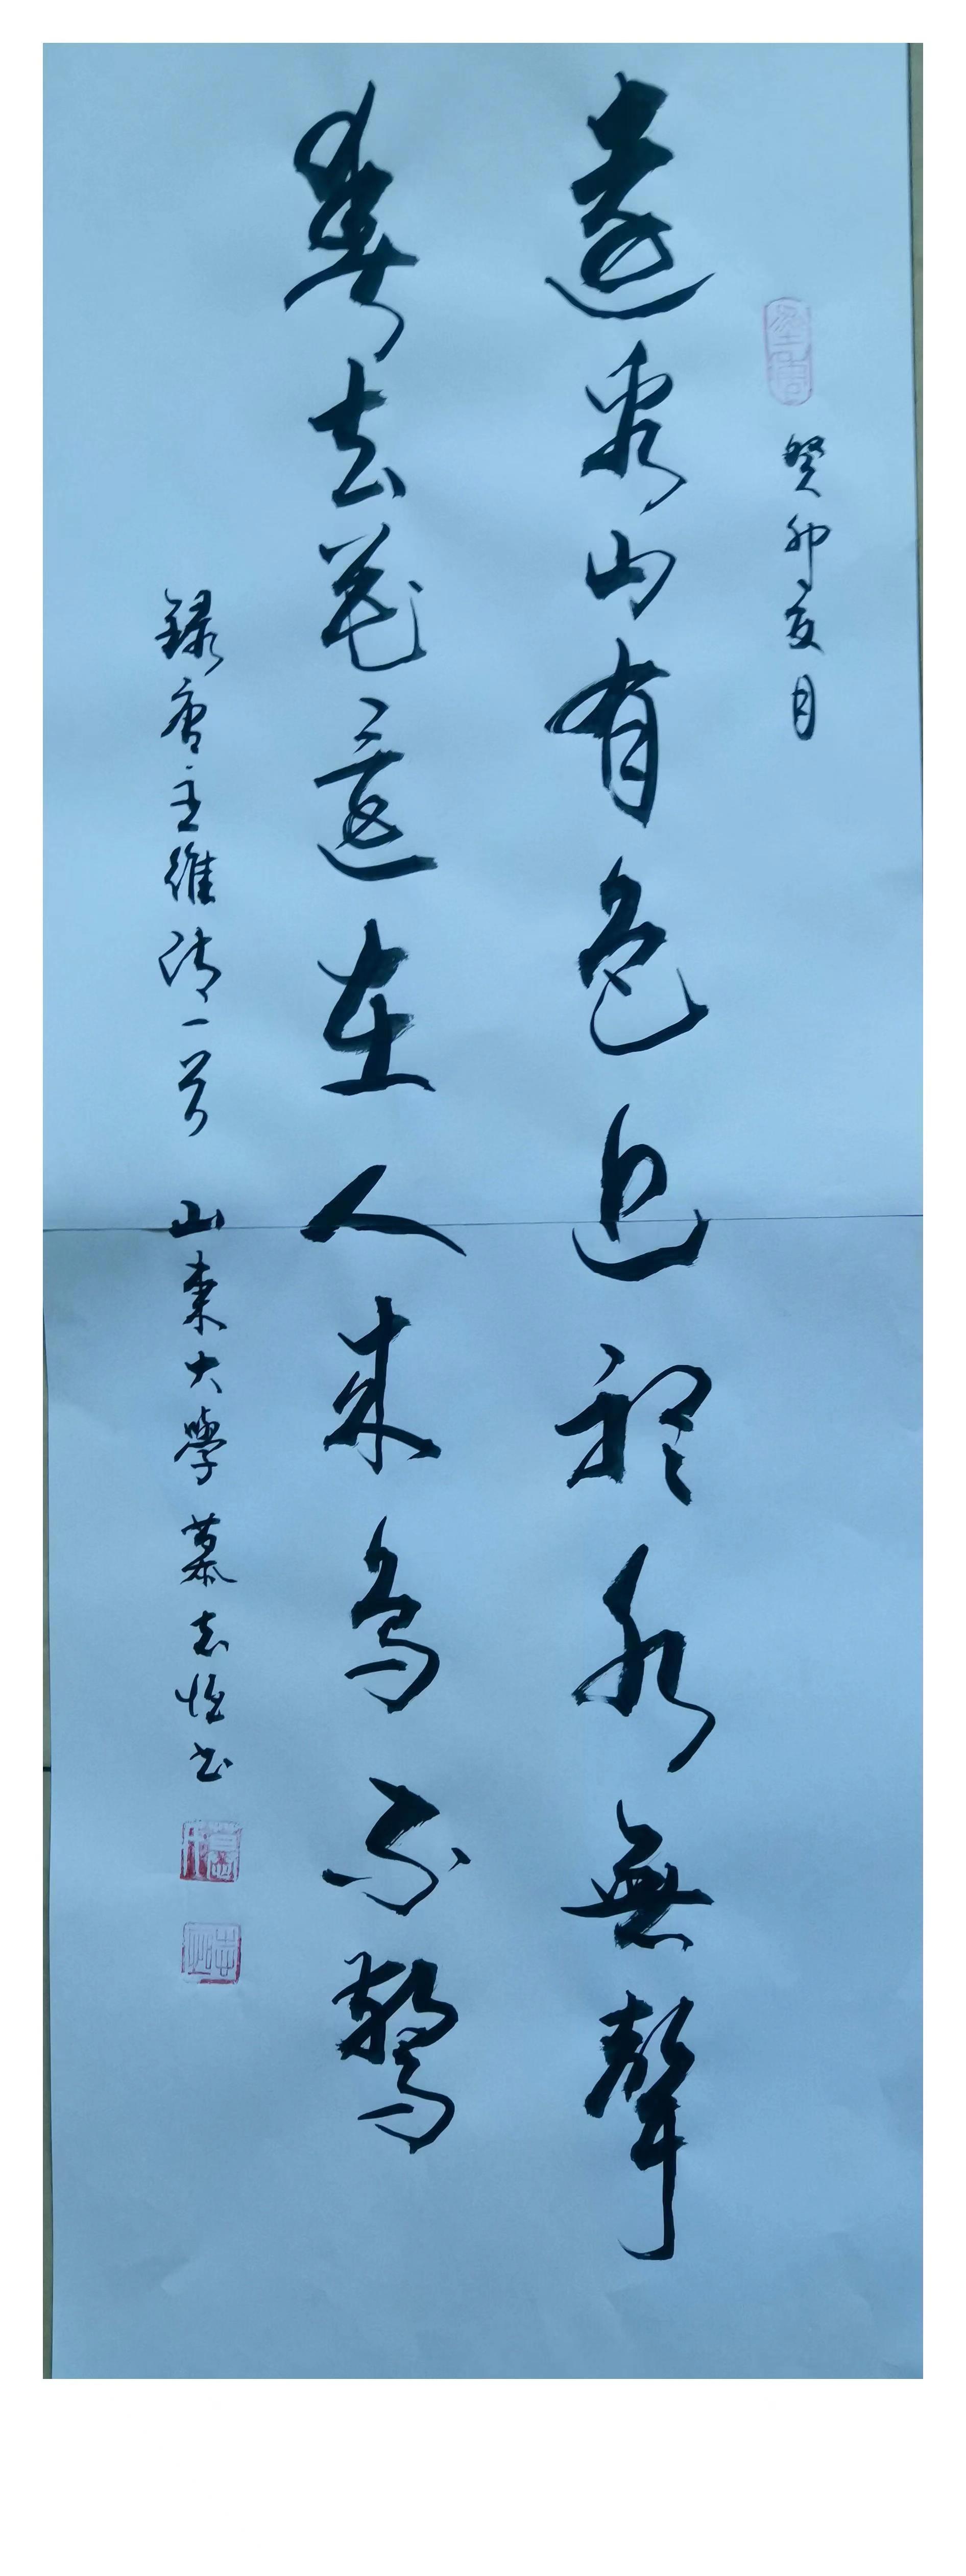 癸卯亥月
遠看山有色近聽水無聲
春去花還在人來鳥不驚
錄唐王維诗一首 山東大學 慕志恒书